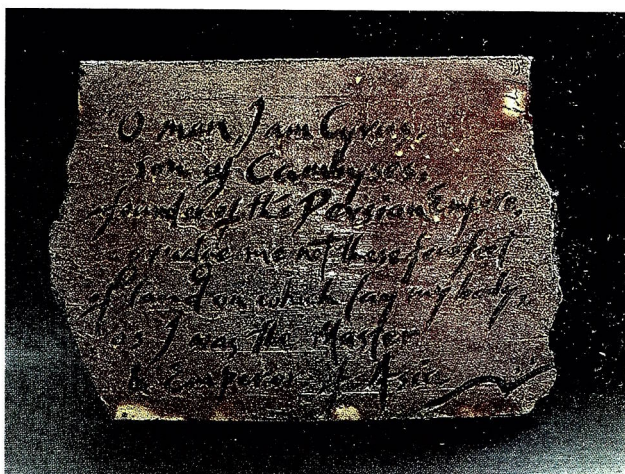 O man, I am Cyrus,
son of Cambyses,
founder of the Persian Empire,
me not these few feet
of land on which lay my body,
as I was the Master
& Emperor of Asia